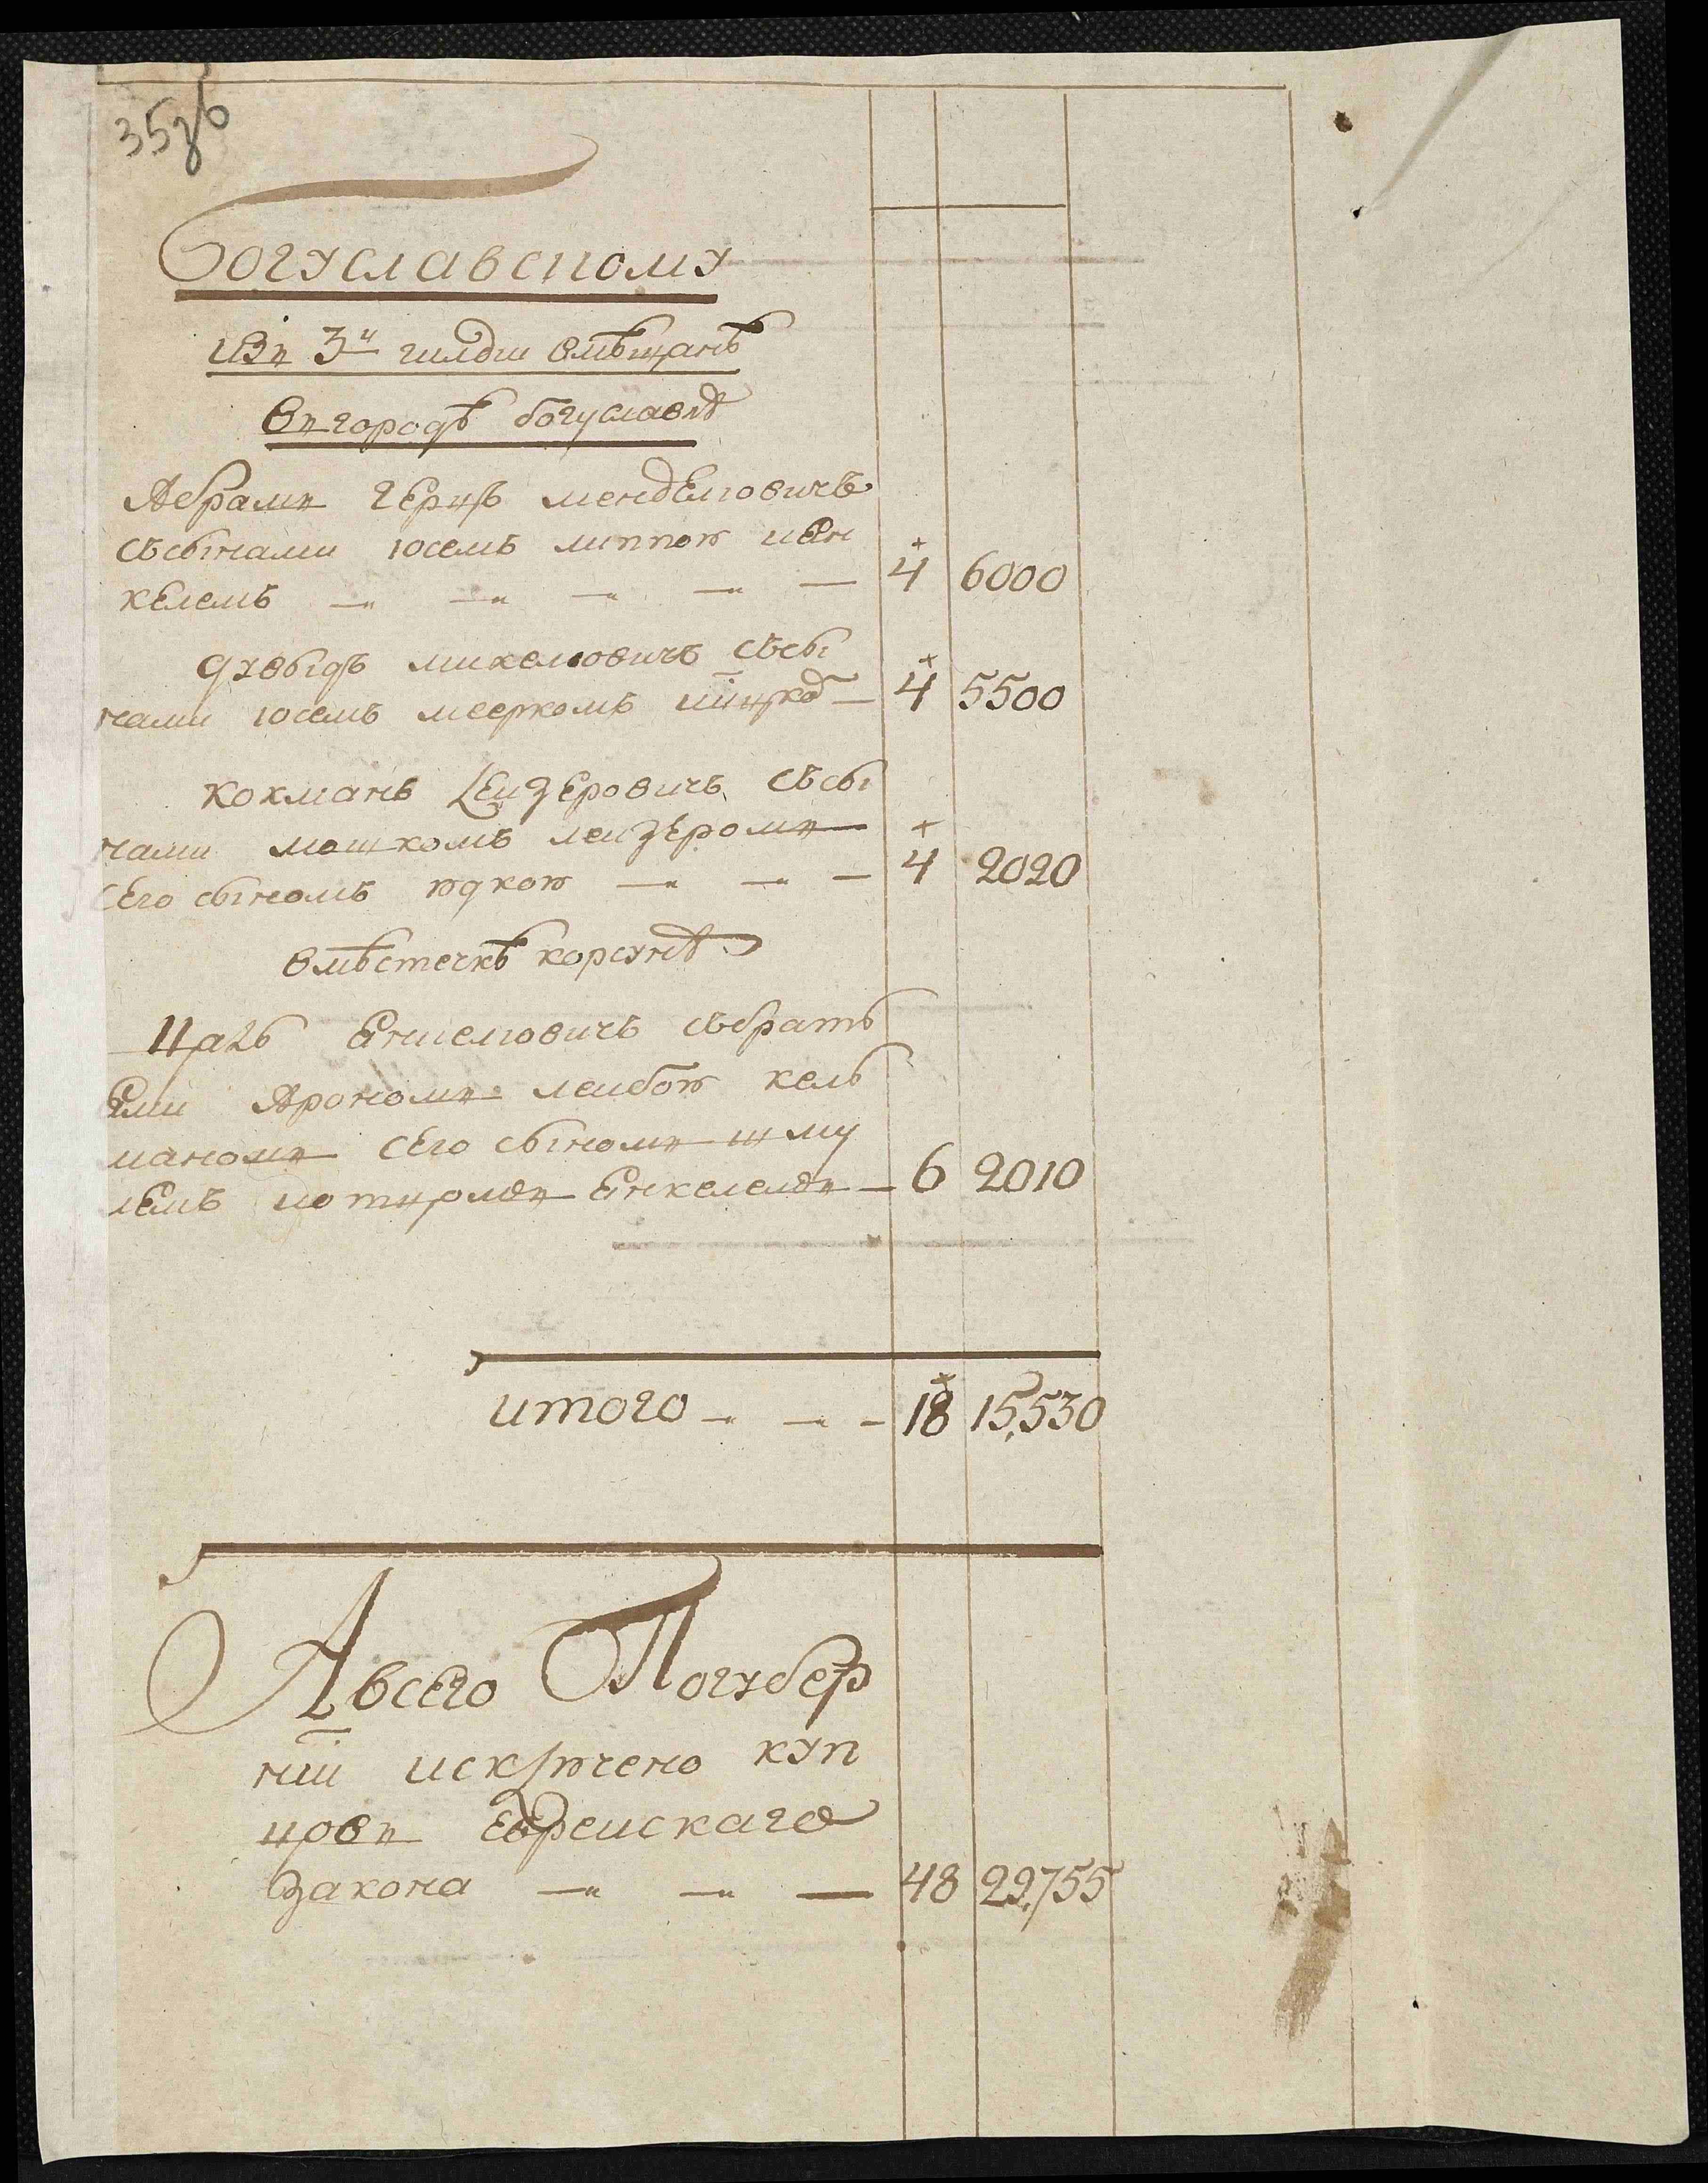 35зв
Богуславскому
изъ 3й гилди вмѣщанъ
въ городѣ богуславлѣ
Абрамъ Герцъ мендElювичъ
съсынами юсемъ липкою иЕн
кЕлемъ — — — — — 4 6000
Дувыдъ микелювичъ съсы
нами юсемъ мееркомъ — 4 5500
кохманъ лЕйзЕровичъ съсы
нами мошкомъ лейзЕромъ
сЕго сыномъ юдкою — — — 4 2020
вмѣстечкѣ корсунѣ
Ецкелювичъ събрать
Ями Арономъ лейбою кель
маномъ сЕго сыномъ шму
лЕмъ Енкелемъ — 6 2010
итого — — — 18 15,530
Авсего Погубер
нiи исключено куп
цовъ Еврейскаго
закона — — — 48 29,755